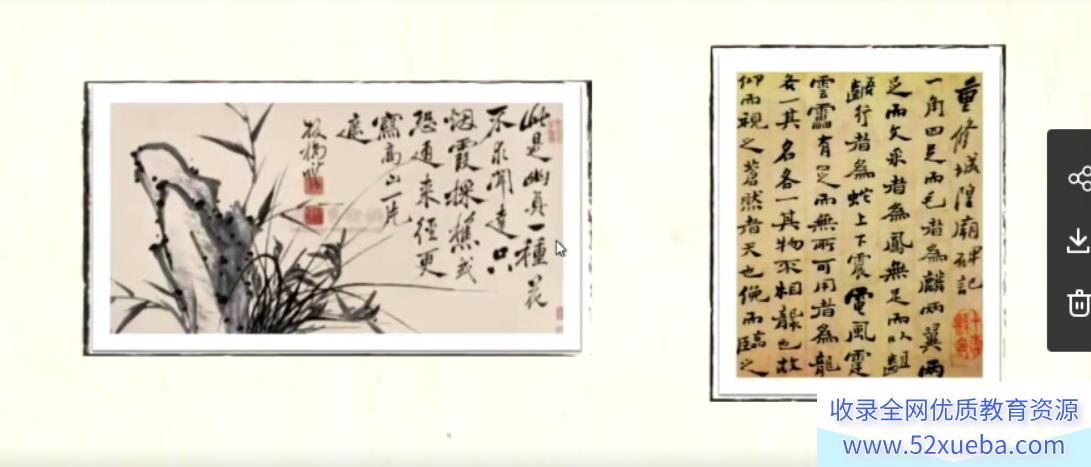 此是幽貞一種花
不求聞達只
烟霞採樵或
恐通来徑更
寫高山一片
遮
板橋
重修城隍廟碑記
一角四足而毛者為麟兩翼兩
足而文采者為鳳無足而以齟
齬行者為蛇上下震電風霆
雲靁有足而無所可用者為龍
各一其名各一其物不相襲也故
仰而視之蒼然者天也俛而臨之
收录全网优质教育资源
www.52xueba.com